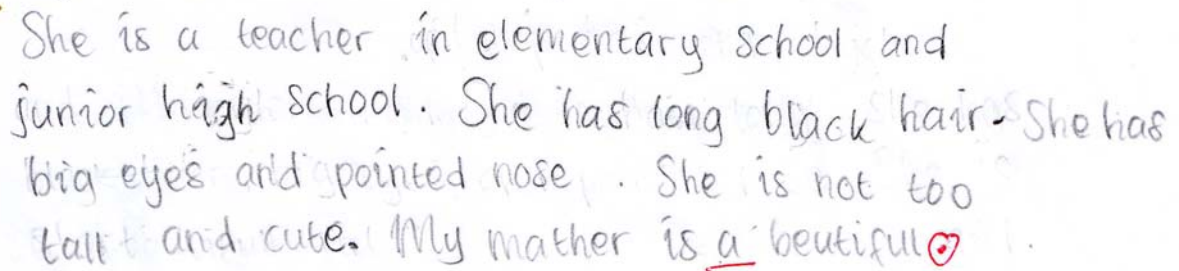 She is a teacher in elementary school and
junior high school. She has long black hair. She has
big eyes and pointed nose. She is not too
tall and cute. My mather is a beutiful.